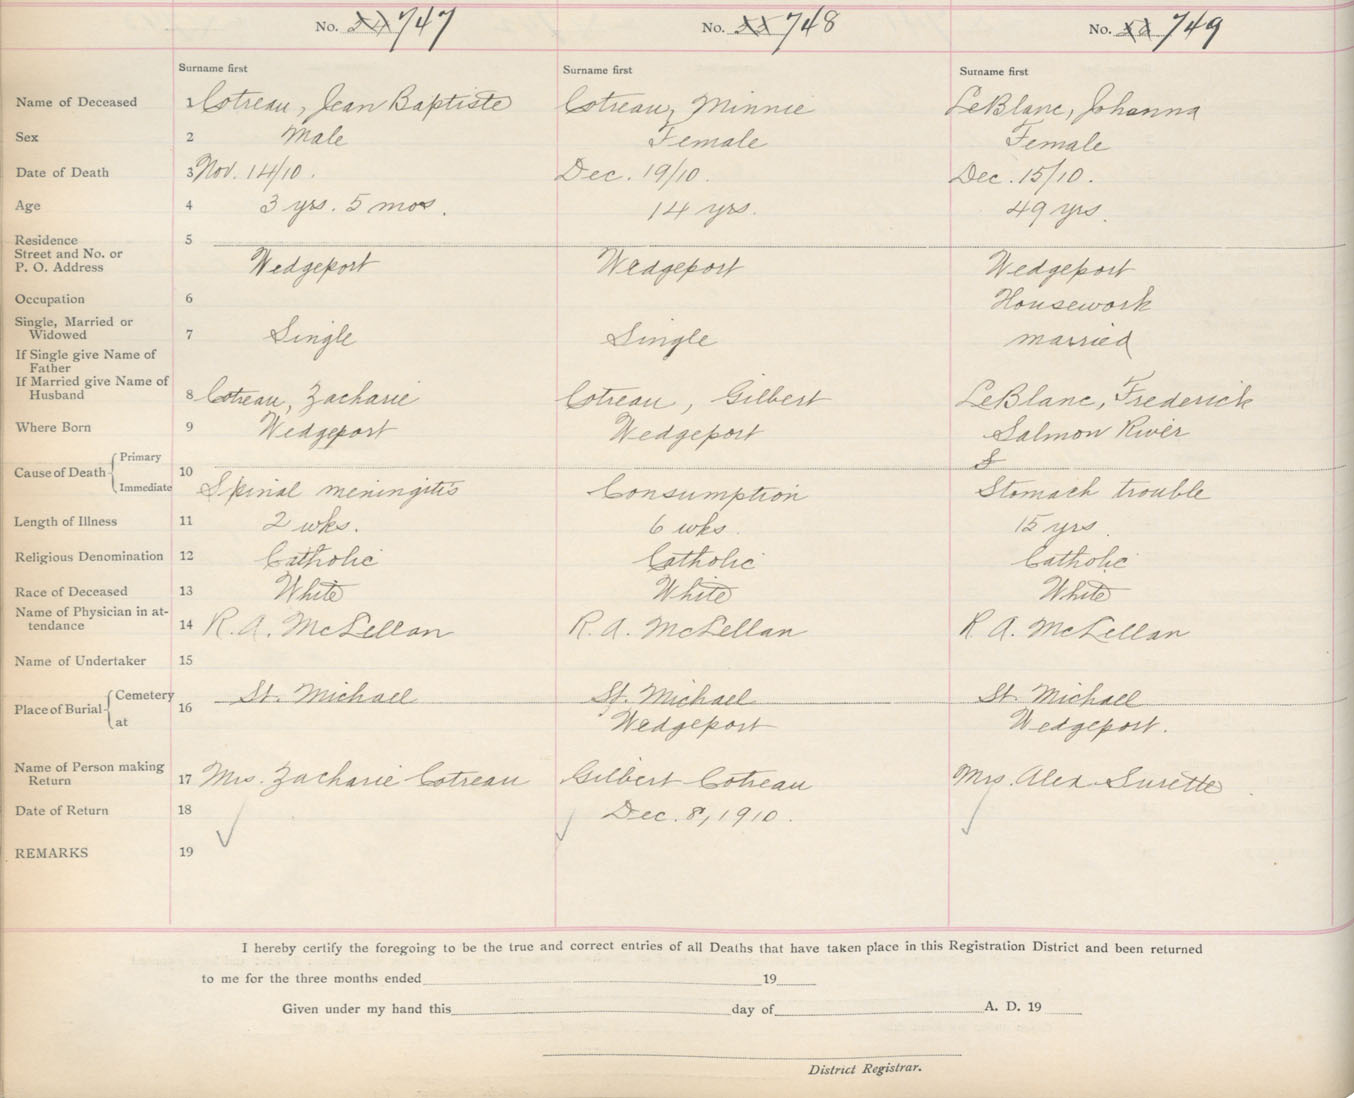 No. 747 No. 748 No. 749
Surname first Surname first Surname first
Name of Deceased 1 Cotreau, Jean Baptiste Cotreau, Minnie LeBlanc, Johanna
Sex 2 Male Female Female
Date of Death 3 Nov. 14/10. Dec. 19/10. Dec. 15/10.
Age 4 3 yrs. 5 mos. 14 yrs. 49 yrs.
Residence 5
Street and No. or
P. O. Address Wedgeport Wedgeport Wedgeport
Occupation 6 Housework
Single, Married or
Widowed 7 Single Single married
If Single give Name of
Father
If Married give Name of
Husband 8 Cotreau, Zacharie Cotreau, Gilbert LeBlanc, Frederick
Where Born 9 Wedgeport Wedgeport Salmon River
Primary S
Cause of Death 10
Immediate Spinal meningitis Consumption Stomach trouble
Length of Illness 11 2 wks. 6 wks. 15 yrs.
Religious Denomination 12 Catholic Catholic Catholic
Race of Deceased 13 White White White
Name of Physician in at-
tendance 14 R. A. McLellan R. A. McLellan R A. McLellan
Name of Undertaker 15
Cemetery St. Michael St. Michael St. Michael
Place of Burial 16
at Wedgeport Wedgeport.
Name of Person making
Return 17 Mrs. Zacharie Cotreau Gilbert Cotreau Mrs. Alex Surette
Date of Return 18 Dec. 8, 1910.
REMARKS 19
I hereby certify the foregoing to be the true and correct entries of all Deaths that have taken place in this Registration District and been returned
to me for the three months ended 19
Given under my hand this day of A. D. 19
District Registrar.